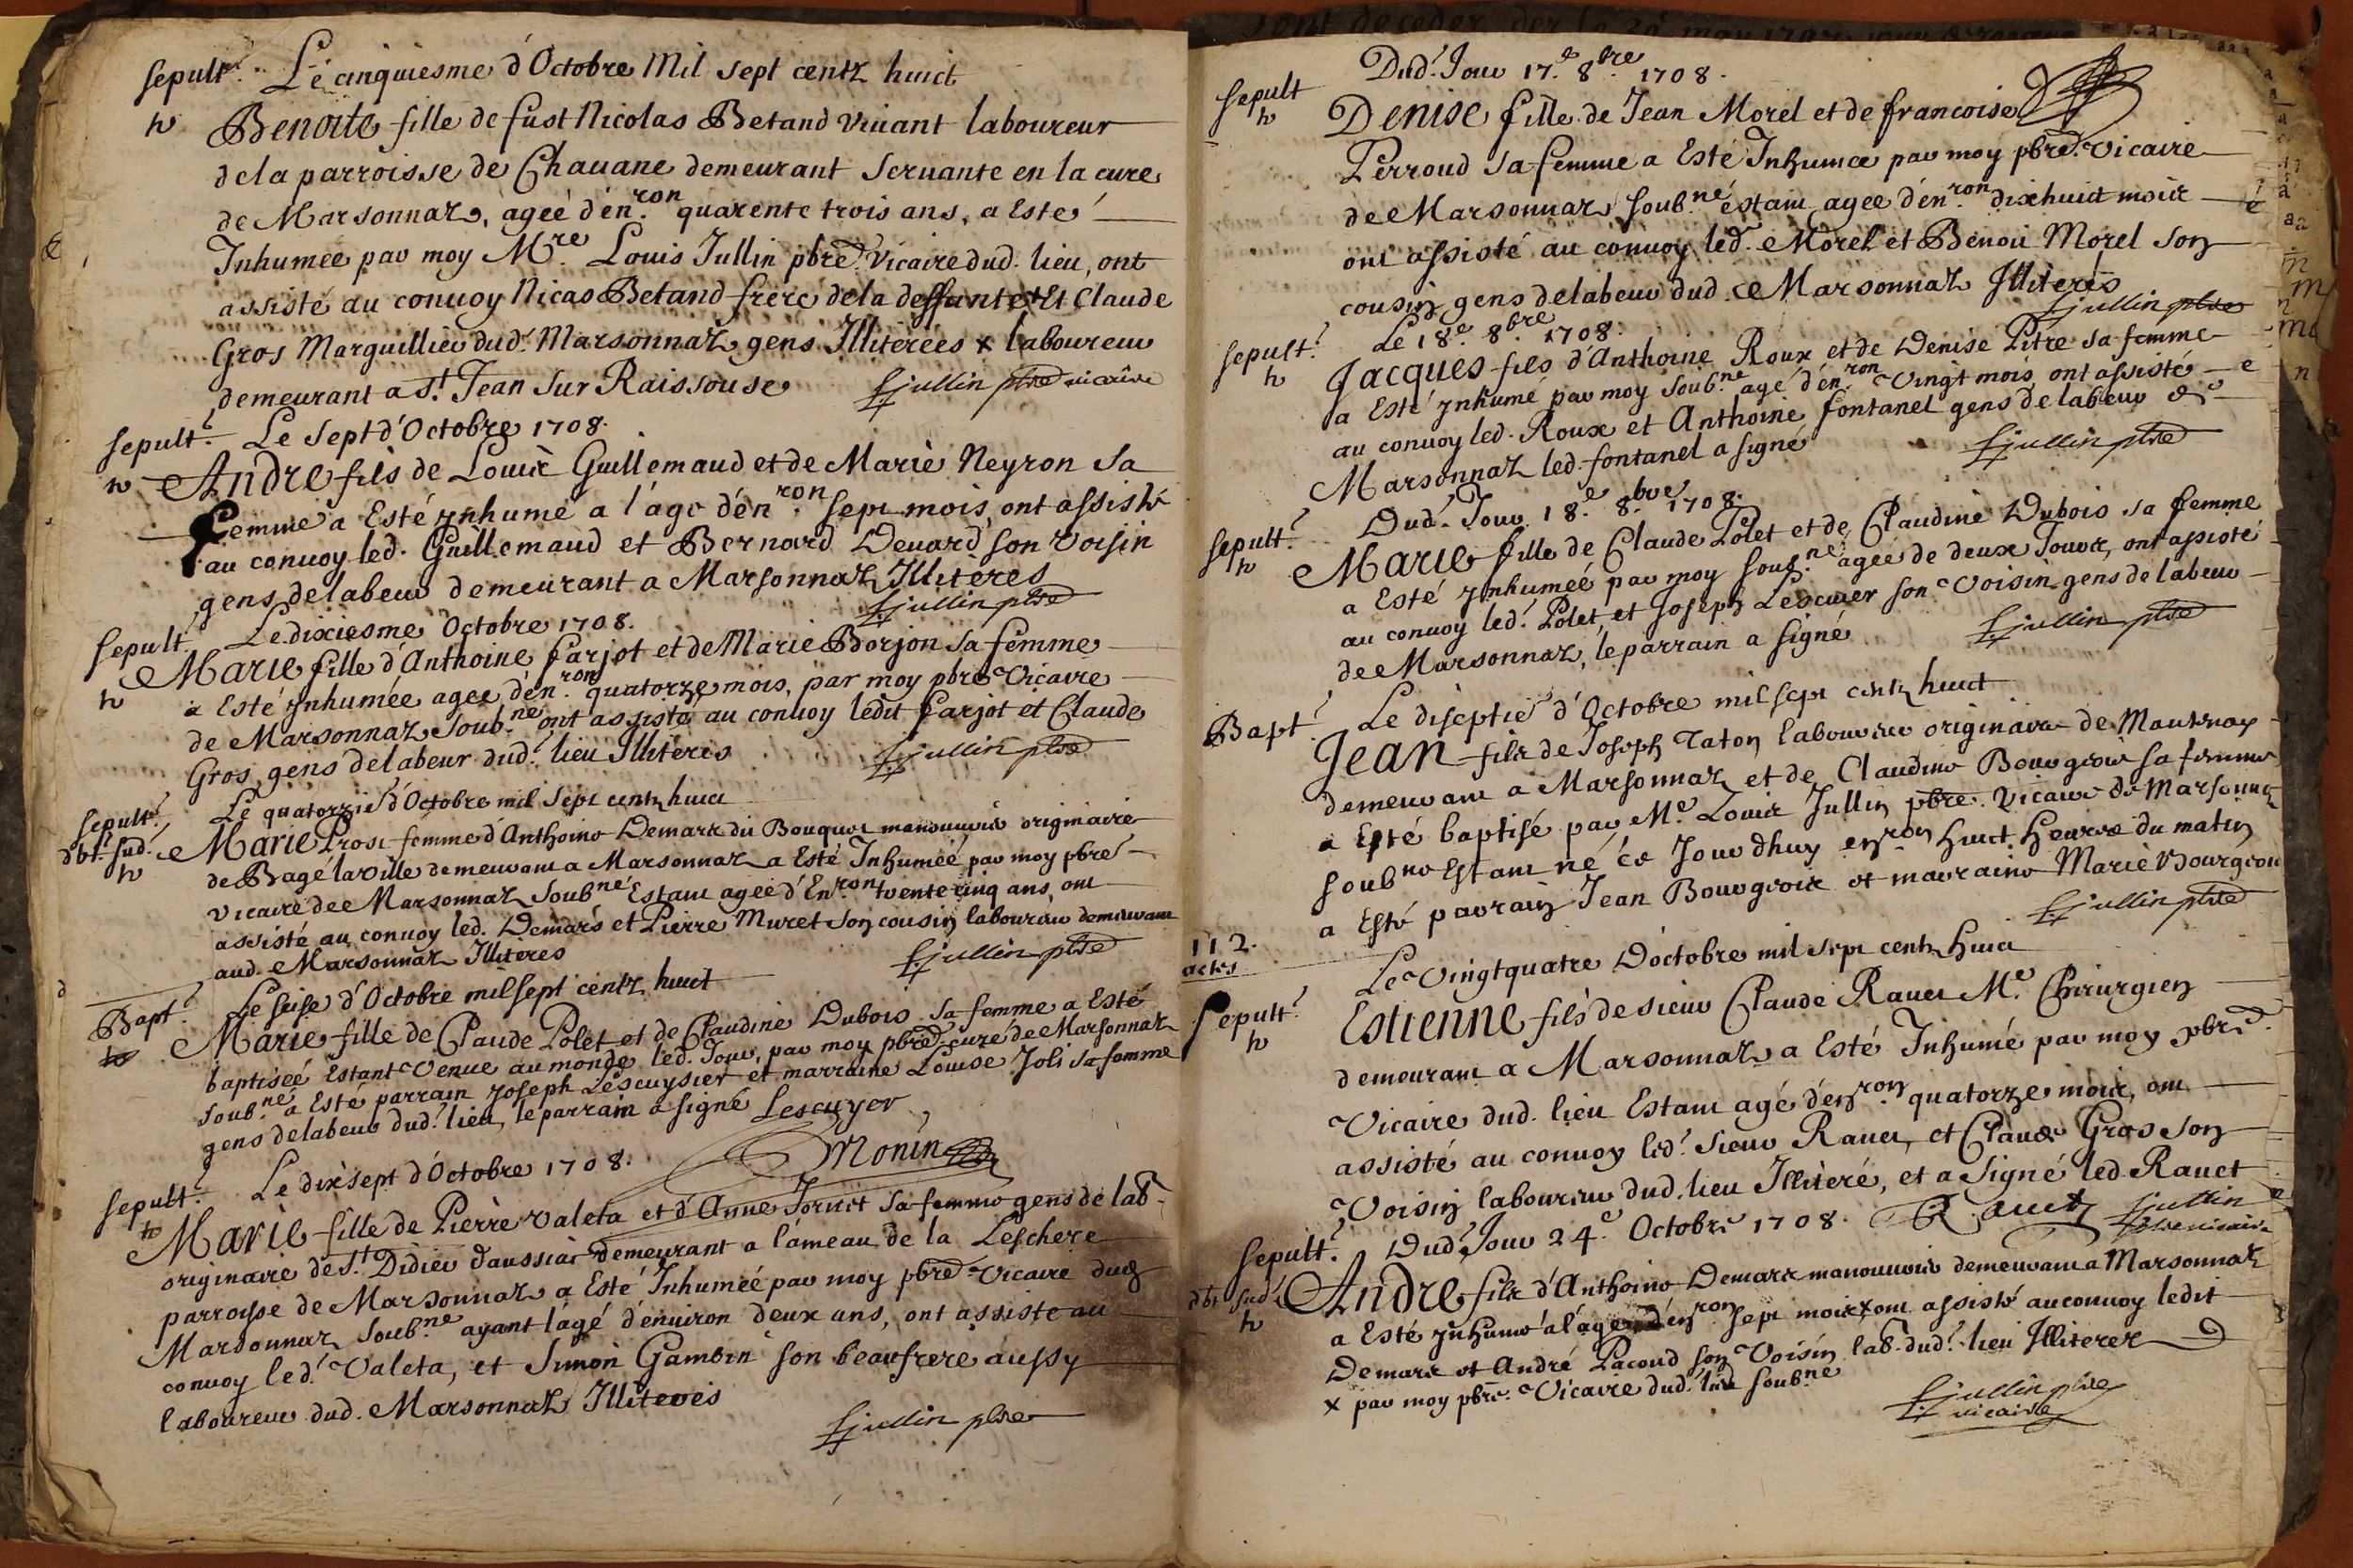 sepult.e Le cinquiesme d'Octobre Mil sept centz huict
h Benoite fille de fust Nicolas Betand viuant laboureur
dela parroisse de Chauane demeurant seruante en la cure
de Marsonnaz, ageé d'en.ron quarente trois ans, a esté
Inhumée par moy M.re Louis Jullin pbre. vicaire dud. lieu, ont
assisté au conuoy Nicas Betand frere dela deffunte + Et Claude
Gros Marguillier dud. Marsonnaz gens Illiterées x laboureur
demeurant a s.t Jean sur Raissouse Ljullin pbre vicaire
sepult.e Le sept d'Octobre 1708.
h Andre fils de Louis Guillemaud et de Marie Neyron sa
femme a Esté ynhumé a l'age d'en.ron sept mois, ont assisté
au conuoy led. Guillemaud et Bernard Deuard son voisin
gens delabeur demeurant a Marsonnaz Illiteres
Ljullin pbre
sepult.e Le dixiesme Octobre 1708.
h Marie fille d'Anthoine farjot et de Marie Borjon sa femme
a Esté ynhumée agee d'en.ron quatorze mois, par moy pbre Vicaire
de Marsonnaz soub.ne ont assisté au conuoy ledit farjot et Claude
Gros gens delabeur dud. lieu Illiteres Ljullin pbre
sepult.e Le quatorzie d'Octobre mil sept centz huict
dbt. sud. Marie Prost femme d'Anthoine Demark dit Bouquet manouurier originaire
h de Bagé laville demeurant a Marsonnaz a Esté Inhumeé par moy pbre
vicaire de Marsonnaz soub.ne Estant agée d'En.ron trente cinq ans, ont
assisté au conuoy led. Demars et Pierre Muret son cousin laboureur demeurant
aud. Marsonnaz Illiteres Ljullin pbre
Bapt.e Le seise d'Octobre mil sept centz huict
Marie fille de Claude Polet et de Claudine Dubois sa femme a Esté
baptiseé Estant Venue au monde led. Jour, par moy pbre. curé de Marsonnaz
soub.ne a Esté parrain Joseph Lescuysier et marraine Louise Joli sa femme
gens delabeur dud. lieu, le parrain a signé Lescuyer
Monin
sepult.e Le dix sept d'Octobre 1708.
h Marie fille de Pierre Valeta et d'Anne sa femme gens de lab.
originaire de S.t Didier daussiat demeurant a l'ameau de la Leschere
parroisse de Marsonnaz a Esté Inhumeé par moy pbre Vicaire dud
Marsonnaz soub.ne ayant l'agé d'enuiron deux ans, ont assisté au
conuoy led. Valeta, et Simon Gambin son beaufrere aussy
laboureur dud. Marsonnaz Illiteres
Ljullin pbre
Dud. Jour 17.e 8.bre 1708.
sepult h Denise fille de Jean Morel et de francoise
Perroud sa femme a Esté Inhumée par moy pbre. Vicaire
de Marsonnaz soub.ne éstant agee d'en.ron dixhuict mois
ont assisté au conuoy led. Morel et Benoit Morel son
cousin gens delabeur dud. Marsonnaz Illiteres
Ljullin pbre
sepult.e Le 18.e 8.bre 1708.
h Jacques fils d'Anthoine Roux et de Denise Pitre sa femme
a Esté ynhumé par moy soub.ne agé d'en.ron Vingt mois, ont assisté
au conuoy led. Roux et Anthoine fontanel gens de labeur de
Marsonnaz led. fontanel a signé Ljullin pbre
sepult.e Dud. Jour 18.e 8.bre 1708.
h Marie fille de Claude Polet et de Claudine Dubois sa femme
a Esté ynhumeé par moy soub.ne ageé de deux Jours, ont assisté
au conuoy led. Polet, et Joseph Lescuier son Voisin gens de labeur
de Marsonnaz, le parrain a signé Ljullin pbre
Bapt.e Le diseptie d'Octobre mil sept centz huict
Jean fils de Joseph Taton laboureur originaire de
demeurant a Marsonnaz et de Claudine Bourgeois sa femme
a Esté baptisé par M.e Louis Jullin pbre. Vicaire de Marsonnaz
soub.ne Estant né ce Jour dhuy enron huict heures du matin
a Esté parrain Jean Bourgeois et marraine Marie Bourgeois
Ljullin pbre
112.
actes
Le Vingtquatre D'octobre mil sept centz huict
Sepult.e Estienne fils de sieur Claude Rauet M.e Chirurgien
h demeurant a Marsonnaz a Esté Inhumé par moy pbre.
Vicaire dud. lieu Estant agé d'en.ron quatorze mois, ont
assisté au conuoy led. sieur Rauet, et Claude Gros son
Voisin laboureur dud. lieu Illiteré, et a signé led. Rauet
Rauet Ljullin pbre vicaire
sepult.e Dud. Jour 24.e Octobre 1708.
dbt sud. Andre fils d'Anthoine Demark manouurier demeurant a Marsonnaz
h a Esté ynhumé a l'age d'en.ron sept mois x ont assisté au conuoy ledit
Demark et André Pacoud son Voisin lab. dud. lieu Illiterez
x par moy pbre. Vicaire dud. lieu soub.ne
Ljullin pbre
vicaire